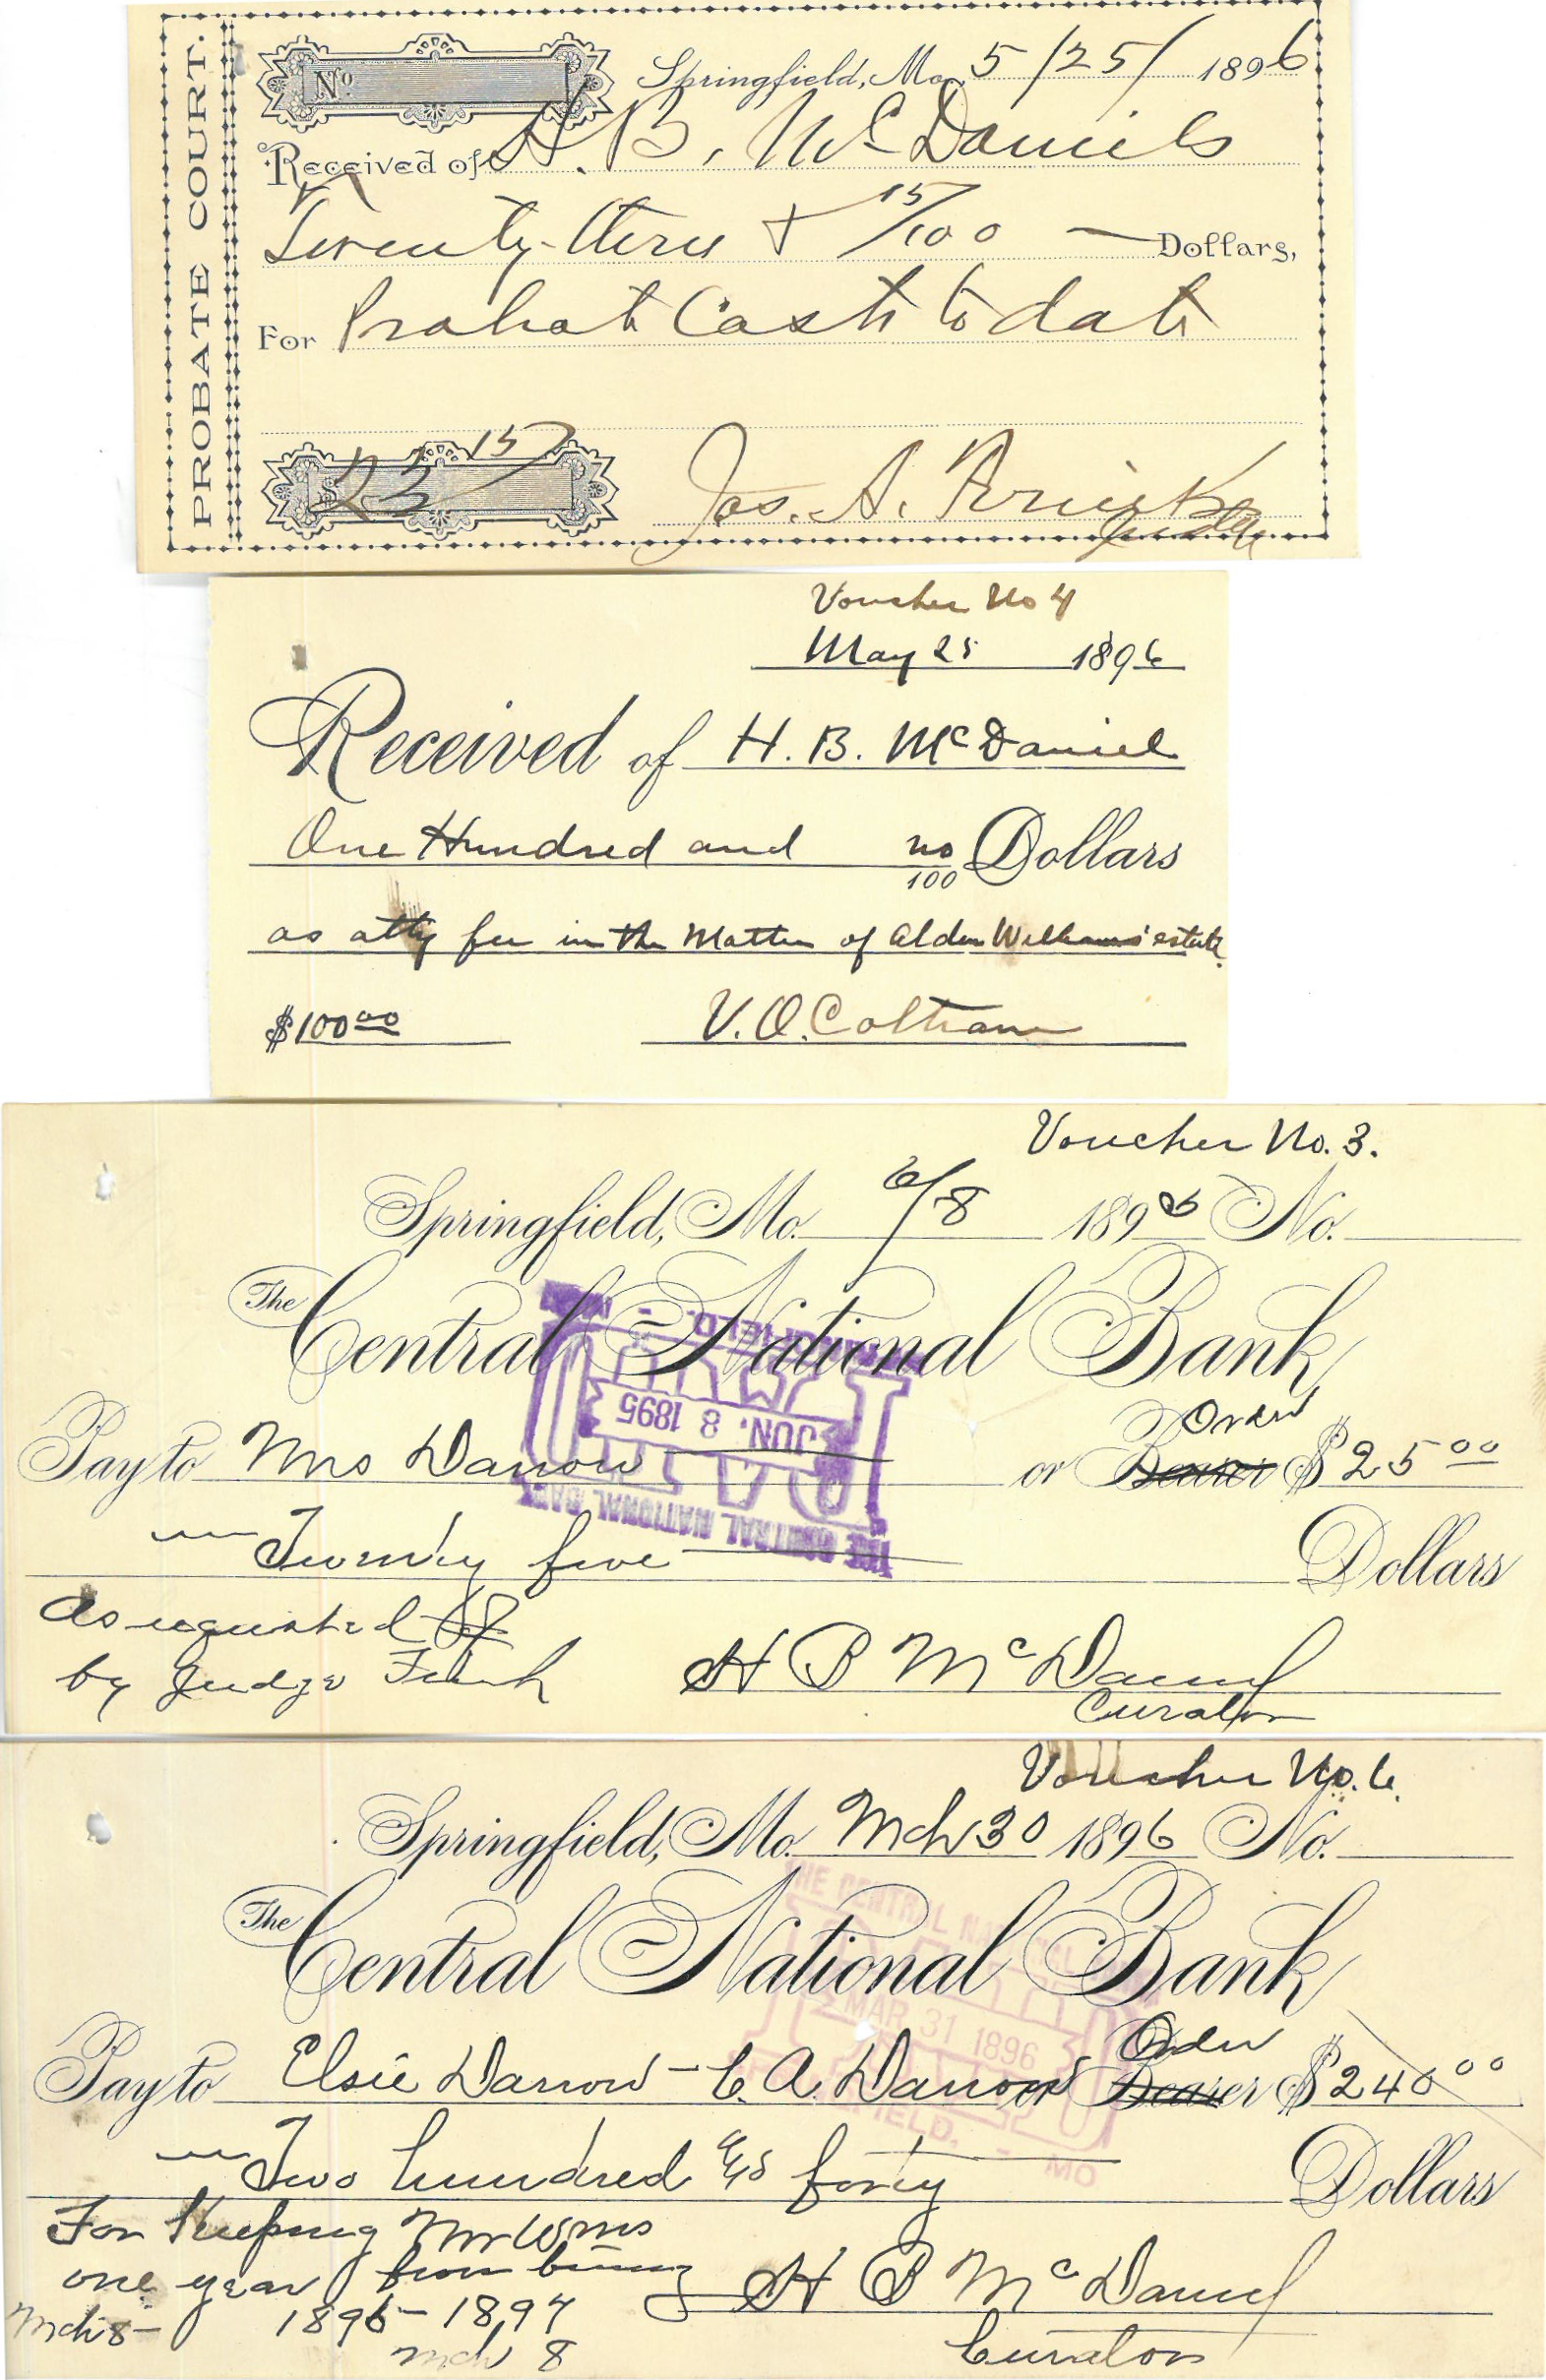 PROBATE COURT.
No
Springfield, Mo. 5/25/ 1896
Received of H. B. McDaniels
Twenty-three & 15/100 — Dollars,
For Probate Costs to date
$ 23 15
Jos. A.
Judge
Voucher No 4
May 25 1896
Received of H. B. McDaniel
One Hundred and no/100 Dollars
as atty fee in the Matter of Alden Williams' estate.
$100 00
V. O. Coltrane
Voucher No. 3.
Springfield, Mo. 6/8 1895 No.
The Central National Bank
Order
Pay to Mrs Darrow or Bearer $ 25 00
Twenty five Dollars
As requested
by Judge
H B McDaniel
Curator
THE CENTRAL NATIONAL BANK
PAID
JUN. 8 1895
SPRINGFIELD. - MO.
Voucher No. 6.
Springfield, Mo. Mch 30 1896 No.
The Central National Bank
Order
Pay to Elsie Darrow - C. A. Darrow or Bearer $ 240 00
Two hundred & forty Dollars
For Keeping Mr Wms
one year
Mch 8 - 1896 - 1897
Mch 8
H B McDaniel
Curator
THE CENTRAL NATIONAL
MAR 31 1896
SPRINGFIELD. - MO